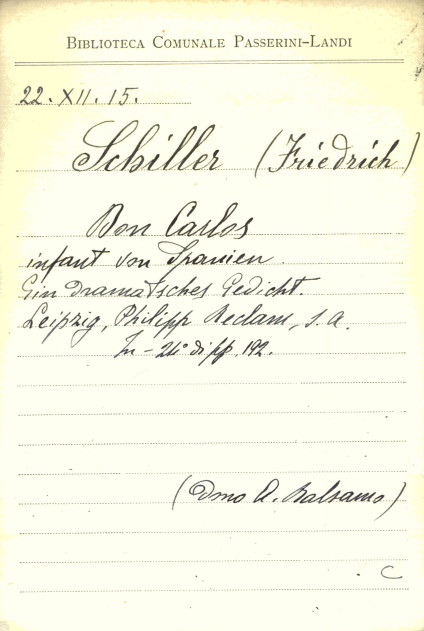 BIBLIOTECA COMUNALE PASSERINI-LANDI
22. XII. 15.
Schiller (Friedrich)
Don Carlos
infant von Spanien.
Ein dramatsches Gedicht.
Leipzig, Philipp Reclam, s. a.
In - 24° di pp. 192.
(Dono A. Balsamo)
C